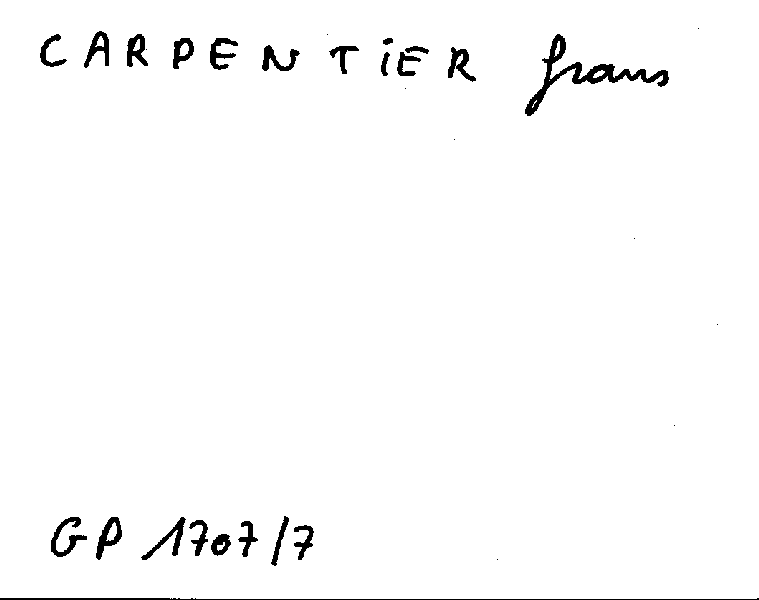 CARPENTiER frans
GP 1707/7